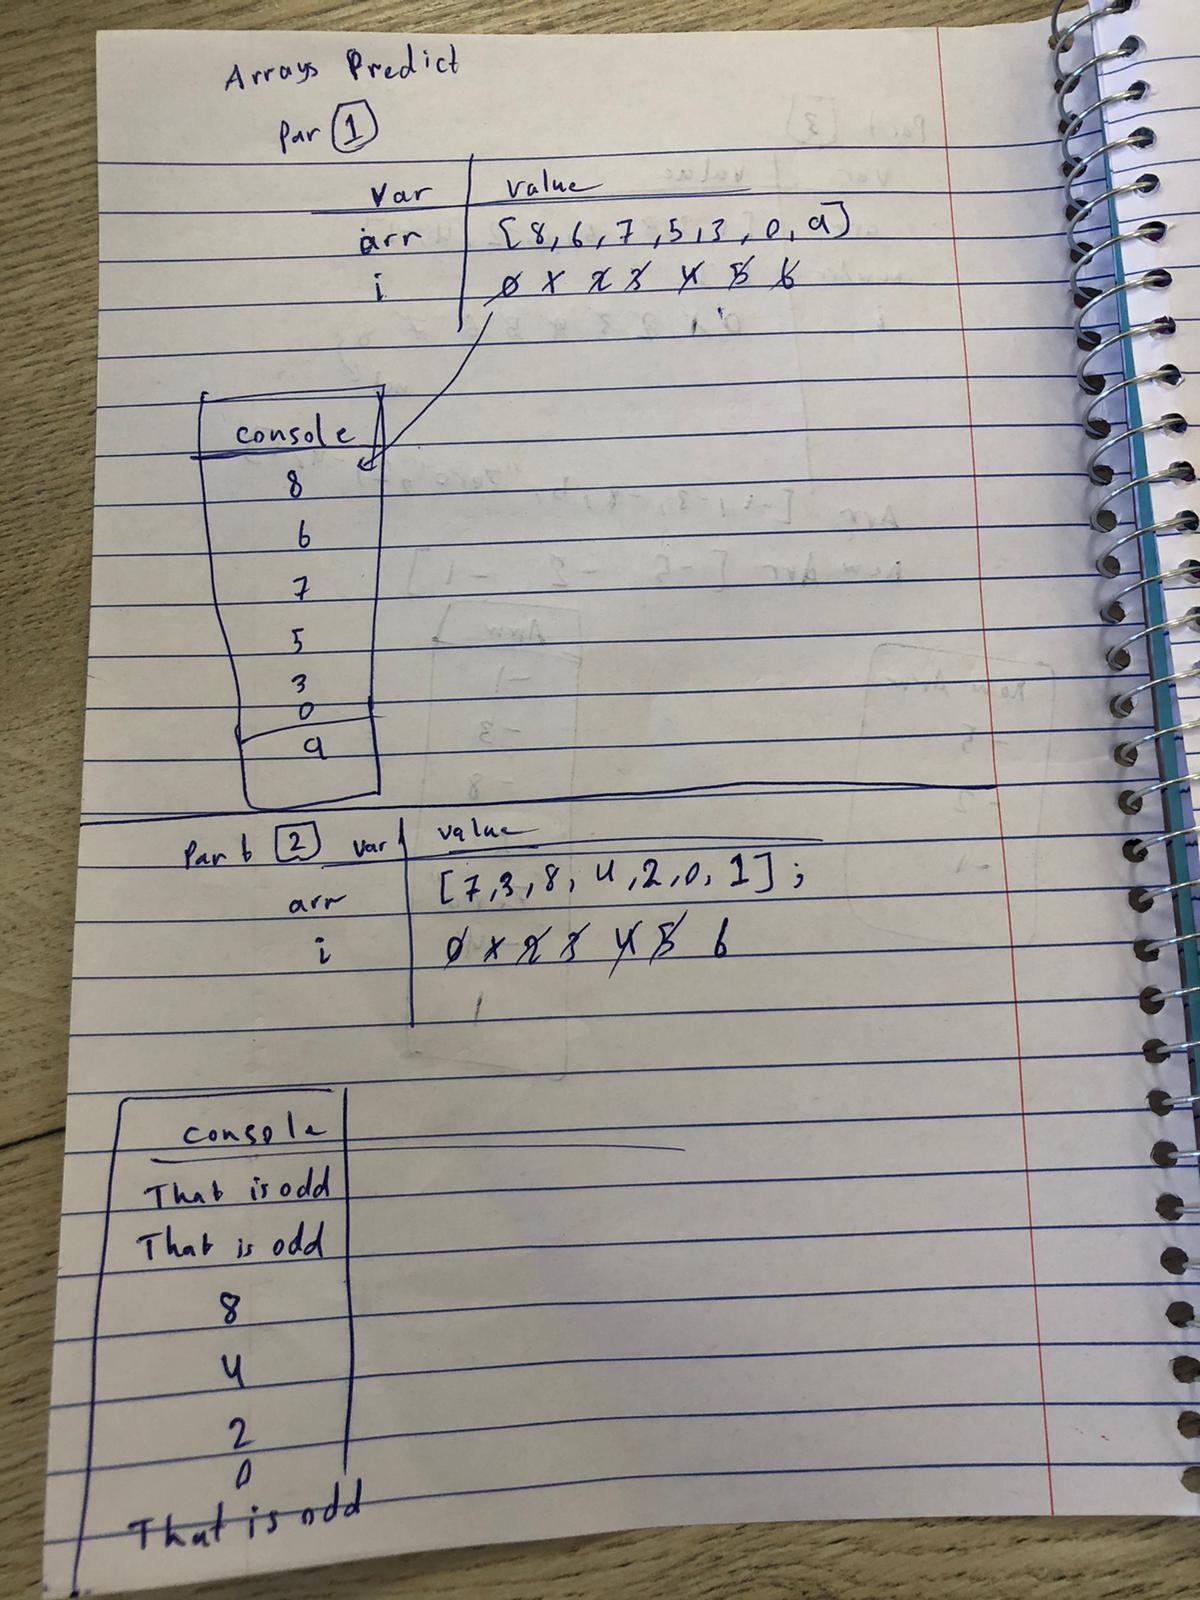 Arrays Predict
Par 1
Var value
arr [8,6,7,5,3,0,9]
i 0 1 2 3 4 5 6
console
8
6
7
5
3
0
9
Part 2 var value
arr [7,3,8,4,2,0,1];
i 0 1 2 3 4 5 6
console
That is odd
That is odd
8
4
2
0
That is odd